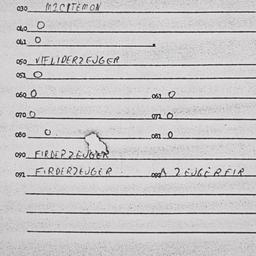 030 MICITEMON
040 O
041 O
050 VIELIDERZEUGER
051 O
060 O 061 O
070 O 071 O
080 O 081 O
090 FIRDERZEUGER
091 FIRDERZEUGER A ZEUGERFIR